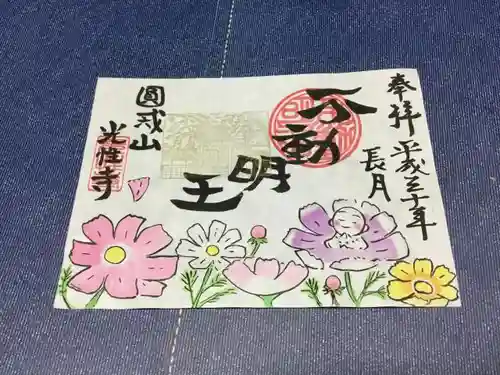 奉拝
平成三十年
長月
不動
明
王
圓戒山
光性寺